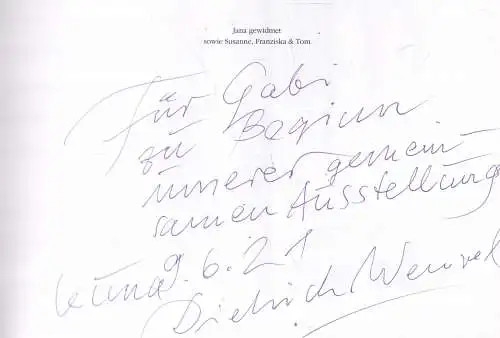 Jana gewidmet
sowie Susanne, Franziska & Tom
Für Gabi
zu Beginn
unserer gemein-
samen Ausstellung
9.6.21
Dietrich Wenzel